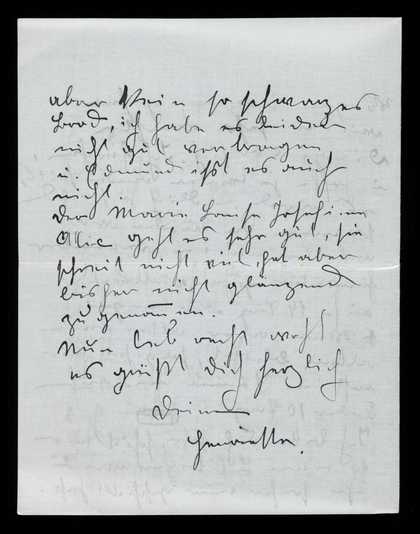 aber kein so schwarzes
Brod, ich habe es leider
nicht gut vertragen
u. Edmund ißt es auch
nicht.
Der Marie Louise Josefine
geht es sehr gut, sie
schreit nicht viel, hat aber
bisher nicht glänzend
zugenommen.
Nun leb recht wohl
es grüßt Dich herzlich
Deine
Henriette.